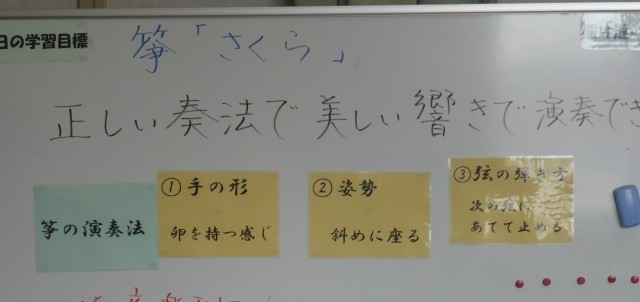 日の学習目標
箏「さくら」
正しい奏法で 美しい響きで演奏でき
箏の演奏法
①手の形
卵を持つ感じ
②姿勢
斜めに座る
③弦の弾き方
次の弦に
あてて止める